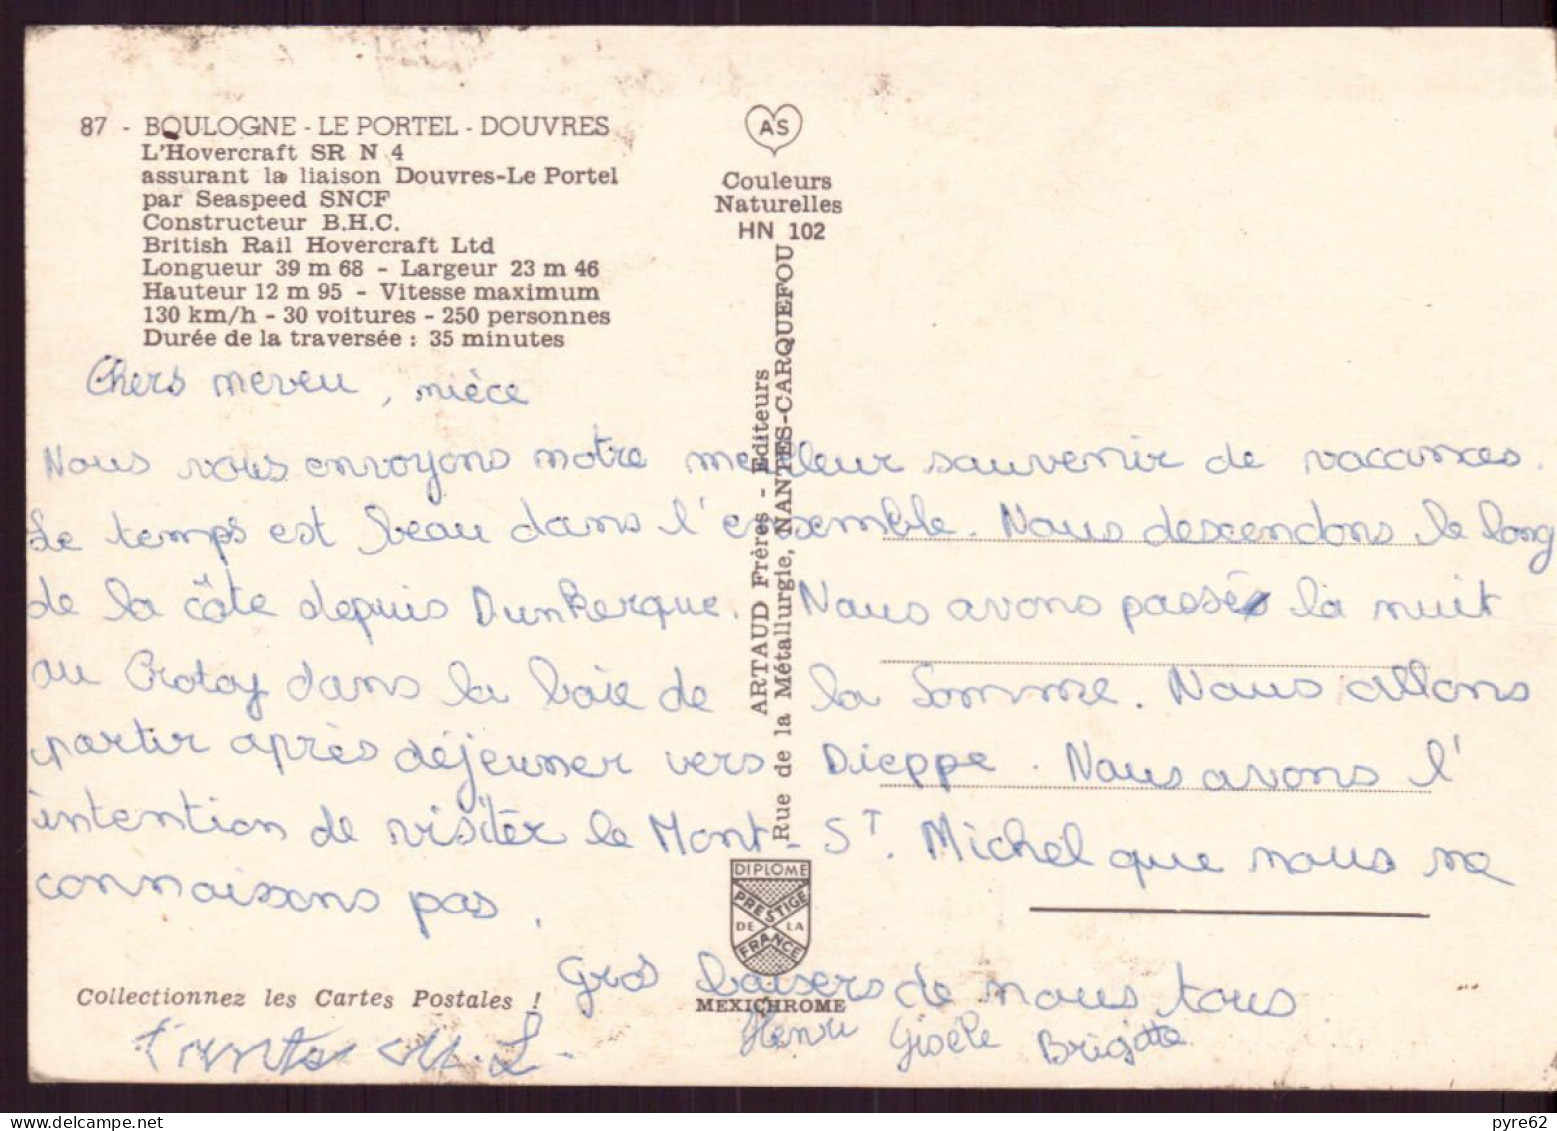 87 - BOULOGNE - LE PORTEL - DOUVRES
L'Hovercraft SR N 4
assurant la liaison Douvres-Le Portel
par Seaspeed SNCF
Constructeur B.H.C.
British Rail Hovercraft Ltd
Longueur 39 m 68 - Largeur 23 m 46
Hauteur 12 m 95 - Vitesse maximum
130 km/h - 30 voitures - 250 personnes
Durée de la traversée : 35 minutes
AS
Couleurs
Naturelles
HN 102
ARTAUD Frères - Editeurs
Rue de la Métallurgie, NANTES-CARQUEFOU
Chers neveu, nièce
Nous vous envoyons notre meilleur souvenir de vacances.
Le temps est beau dans l'ensemble. Nous descendons le long
de la côte depuis Dunkerque. Nous avons passé la nuit
au Crotoy dans la baie de la Somme. Nous allons
partir après déjeuner vers Dieppe. Nous avons l'
intention de visiter le Mont-St. Michel que nous ne
connaissons pas.
Gros baisers de nous tous
Henri Gisèle Brigitte
DIPLOME
PRESTIGE
DE LA
FRANCE
MEXICHROME
Collectionnez les Cartes Postales !
pyre62